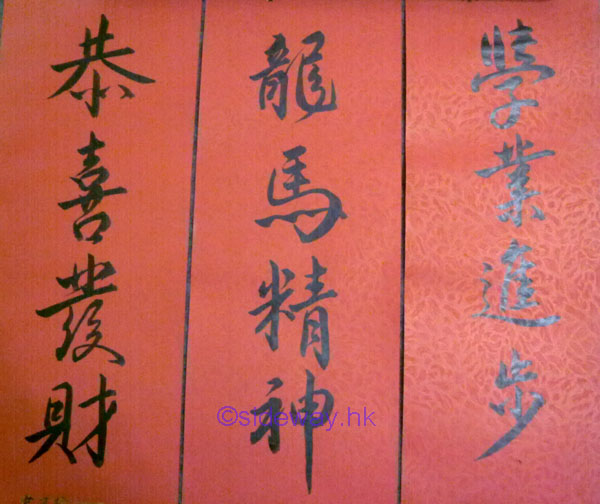 學業進步
龍馬精神
恭喜發財
©sideway.hk